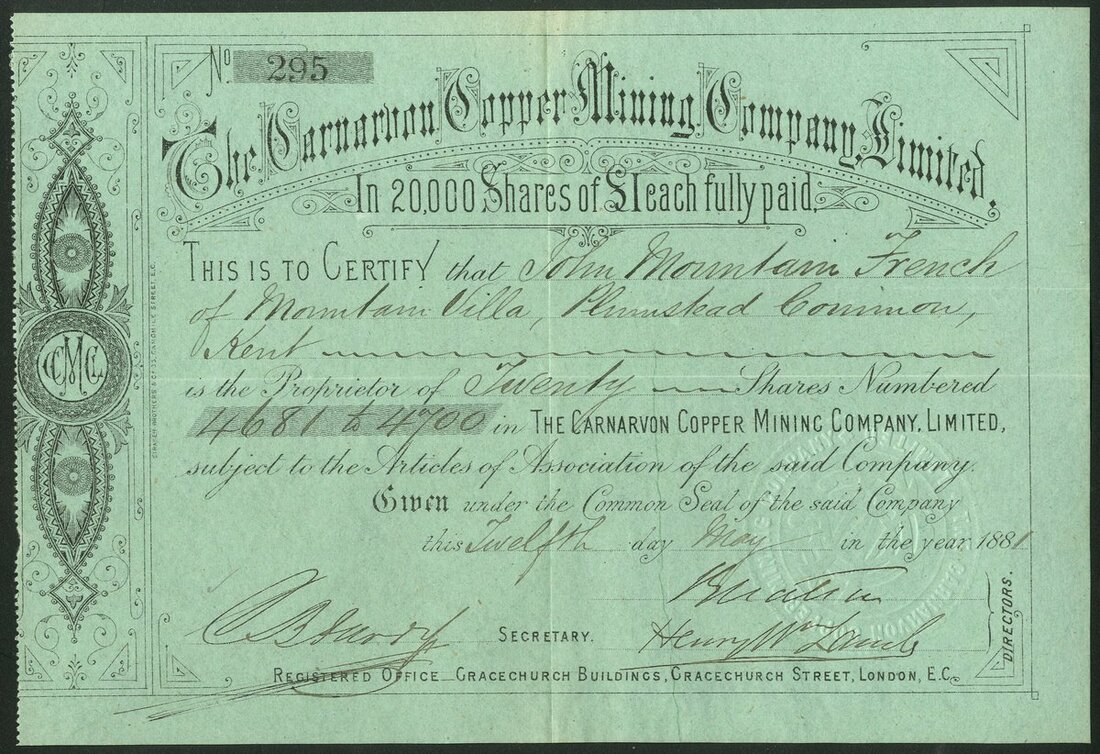 No. 295
The Carnarvon Copper Mining Company, Limited.
In 20,000 Shares of £1 each fully paid.
THIS IS TO CERTIFY that John Mountain French
of Mountain Villa, Plumstead Common,
Kent
is the Proprietor of Twenty Shares Numbered
4681 to 4700 in THE CARNARVON COPPER MINING COMPANY, LIMITED,
subject to the Articles of Association of the said Company.
Given under the Common Seal of the said Company
this Twelfth day May in the year 1881
SECRETARY.
Henry Wm Lamb
DIRECTORS.
REGISTERED OFFICE GRACECHURCH BUILDINGS, GRACECHURCH STREET, LONDON, E.C.
CCMCL
STREET, E.C.